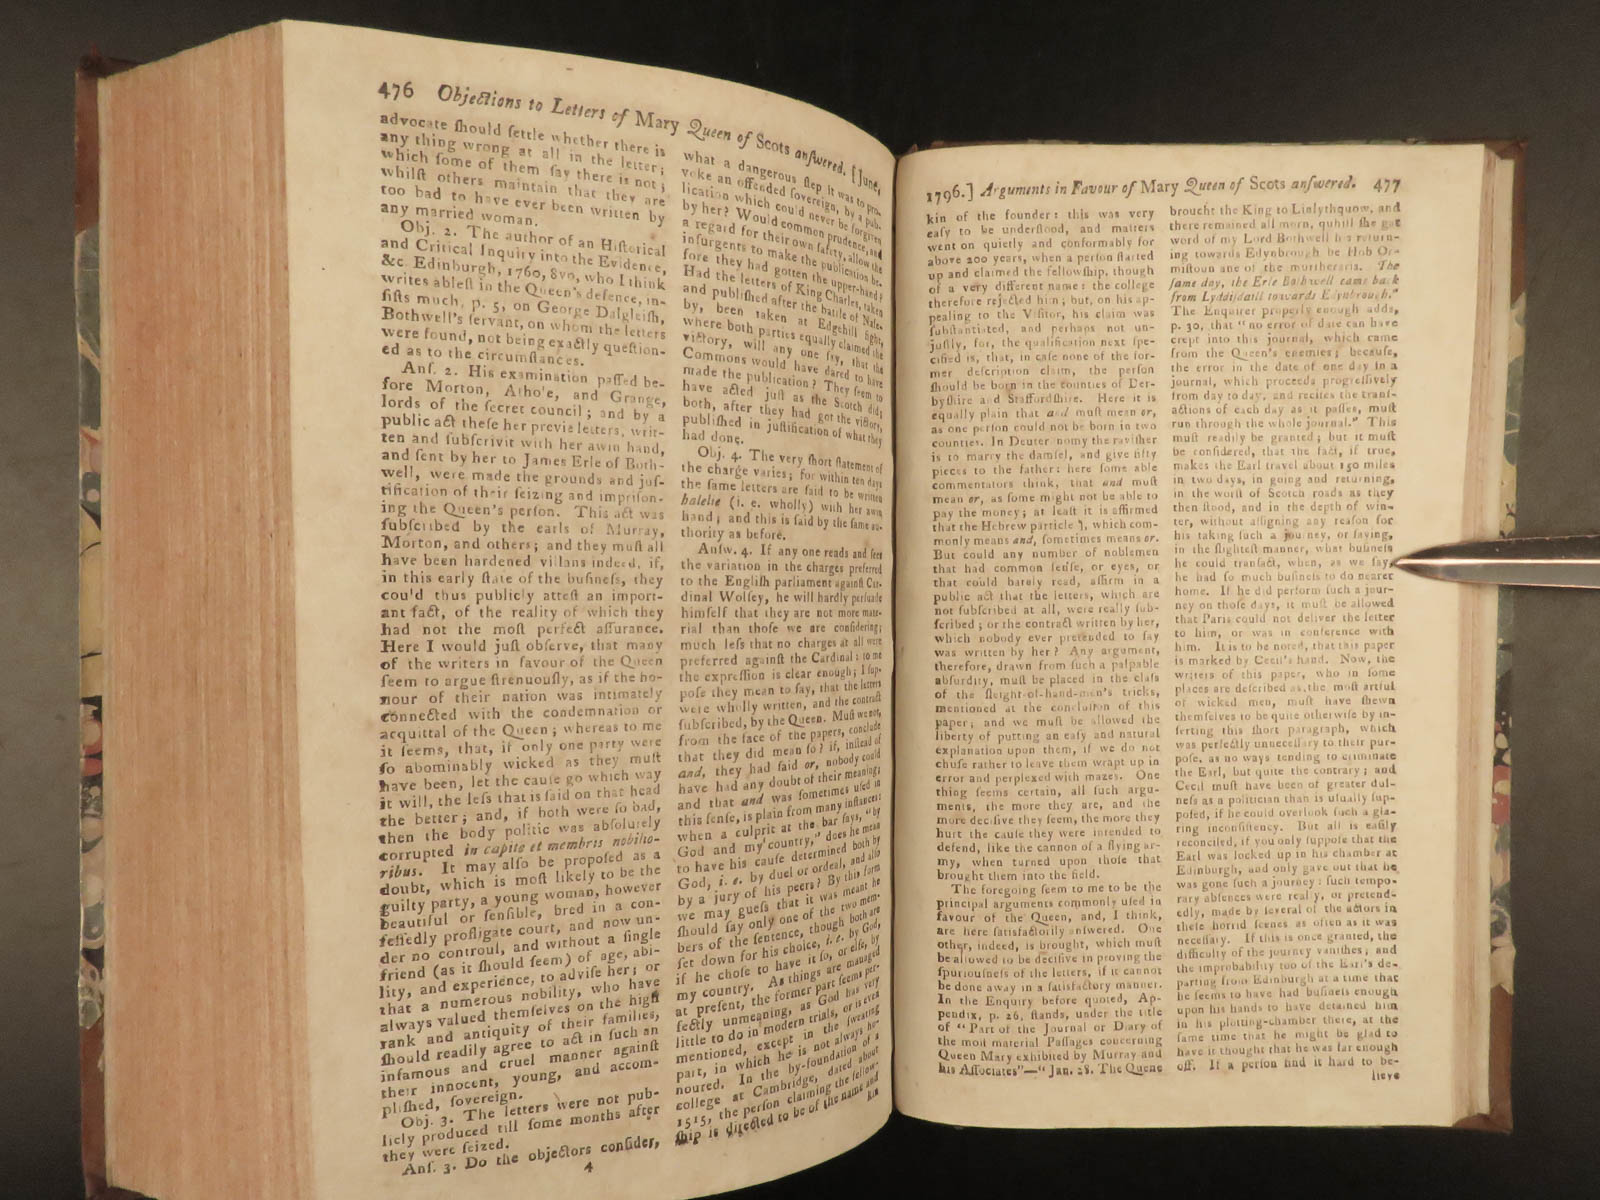 476 Objections to Letters of Mary Queen of Scots anſwered. [June,
advocate ſhould ſettle whether there is
any thing wrong at all in the letter;
which ſome of them ſay there is not;
whilſt others maintain that they are
too bad to have ever been written by
any married woman.
Obj. 2. The author of an Hiſtorical
and Critical Inquiry into the Evidence,
&c. Edinburgh, 1760, 8vo, who I think
writes ableſt in the Queen's defence, in-
ſiſts much, p. 5, on George Dalgleiſh,
Bothwell's ſervant, on whom the letters
were found, not being exactly queſtion-
ed as to the circumſtances.
Anſ. 2. His examination paſſed be-
fore Morton, Atho'e, and Grange,
lords of the ſecret council; and by a
public act theſe her previe letters, writ-
ten and ſubſcrivit with her awin hand,
and ſent by her to James Erle of Both-
well, were made the grounds and juſ-
tification of their ſeizing and impriſon-
ing the Queen's perſon. This act was
ſubſcribed by the earls of Murray,
Morton, and others; and they muſt all
have been hardened villans indeed, if,
in this early ſtate of the buſineſs, they
cou'd thus publicly atteſt an import-
ant fact, of the reality of which they
had not the moſt perfect aſſurance.
Here I would juſt obſerve, that many
of the writers in favour of the Queen
ſeem to argue ſtrenuouſly, as if the ho-
nour of their nation was intimately
connected with the condemnation or
acquittal of the Queen; whereas to me
it ſeems, that, if only one party were
ſo abominably wicked as they muſt
have been, let the cauſe go which way
it will, the leſs that is ſaid on that head
the better; and, if both were ſo bad,
then the body politic was abſolutely
corrupted in capite et membris nobilio-
ribus. It may alſo be propoſed as a
doubt, which is moſt likely to be the
guilty party, a young woman, however
beautiful or ſenſible, bred in a con-
feſſedly profligate court, and now un-
der no controul, and without a ſingle
friend (as it ſhould ſeem) of age, abi-
lity, and experience, to adviſe her; or
that a numerous nobility, who have
always valued themſelves on the high
rank and antiquity of their families,
ſhould readily agree to act in ſuch an
infamous and cruel manner againſt
their innocent, young, and accom-
pliſhed, ſovereign.
Obj. 3. The letters were not pub-
licly produced till ſome months after
they were ſeized.
Anſ. 3. Do the objectors conſider,
4
what a dangerous ſtep it was to pro-
voke an offended ſovereign, by a pub-
lication which could never be forgiven
by her? Would common prudence, and
a regard for their own ſafety, allow the
inſurgents to make the publication be-
fore they had gotten the upper-hand?
Had the letters of King Charles, taken
and publiſhed after the battle of Naſe-
by, been taken at Edgehill fight,
where both parties equally claimed the
victory, will any one ſay, that the
Commons would have dared to have
made the publication? They ſeem to
have acted juſt as the Scotch did;
both, after they had got the victory,
publiſhed in juſtification of what they
had done.
Obj. 4. The very ſhort ſtatement of
the charge varies; for within ten days
the ſame letters are ſaid to be written
halelie (i. e. wholly) with her awin
hand; and this is ſaid by the ſame au-
thority as before.
Anſw. 4. If any one reads and ſees
the variation in the charges preferred
to the Engliſh parliament againſt Car-
dinal Wolſey, he will hardly perſuade
himſelf that they are not more mate-
rial than thoſe we are conſidering;
much leſs that no charges at all were
preferred againſt the Cardinal: to me
the expreſſion is clear enough; I ſup-
poſe they mean to ſay, that the letters
were wholly written, and the contract
ſubſcribed, by the Queen. Muſt we not,
from the face of the papers, conclude
that they did mean ſo? if, inſtead of
and, they had ſaid or, nobody could
have had any doubt of their meaning;
and that and was ſometimes uſed in
this ſenſe, is plain from many inſtances:
when a culprit at the bar ſays, "by
God and my country," does he mean
to have his cauſe determined both by
God, i. e. by duel or ordeal, and alſo
by a jury of his peers? By this form
we may gueſs that it was meant he
ſhould ſay only one of the two mem-
bers of the ſentence, though both are
ſet down for his choice, i. e. by God,
if he choſe to have it ſo, or elſe, by
my country. As things are managed
at preſent, the former part ſeems per-
fectly unmeaning, as God has very
little to do in modern trials, or is even
mentioned, except in the ſwearing
part, in which he is not always ho-
noured. In the by-foundation of a
college at Cambridge, dated about
1515, the perſon claiming the fellow-
ſhip is directed to be of the name and
kin
1796.] Arguments in Favour of Mary Queen of Scots anſwered. 477
kin of the founder: this was very
eaſy to be underſtood, and matters
went on quietly and conformably for
above 200 years, when a perſon ſtarted
up and claimed the fellowſhip, though
of a very different name: the college
therefore rejected him; but, on his ap-
pealing to the Viſitor, his claim was
ſubſtantiated, and perhaps not un-
juſtly, for, the qualification next ſpe-
cified is, that, in caſe none of the for-
mer deſcription claim, the perſon
ſhould be born in the counties of Der-
byſhire and Staffordſhire. Here it is
equally plain that and muſt mean or,
as one perſon could not be born in two
counties. In Deuteronomy the raviſher
is to marry the damſel, and give fifty
pieces to the father: here ſome able
commentators think, that and muſt
mean or, as ſome might not be able to
pay the money; at leaſt it is affirmed
that the Hebrew particle ו, which com-
monly means and, ſometimes means or.
But could any number of noblemen
that had common ſenſe, or eyes, or
that could barely read, affirm in a
public act that the letters, which are
not ſubſcribed at all, were really ſub-
ſcribed; or the contract written by her,
which nobody ever pretended to ſay
was written by her? Any argument,
therefore, drawn from ſuch a palpable
abſurdity, muſt be placed in the claſs
of the ſleight-of-hand-men's tricks,
mentioned at the concluſion of this
paper; and we muſt be allowed the
liberty of putting an eaſy and natural
explanation upon them, if we do not
chuſe rather to leave them wrapt up in
error and perplexed with mazes. One
thing ſeems certain, all ſuch argu-
ments, the more they are, and the
more deciſive they ſeem, the more they
hurt the cauſe they were intended to
defend, like the cannon of a flying ar-
my, when turned upon thoſe that
brought them into the field.
The foregoing ſeem to me to be the
principal arguments commonly uſed in
favour of the Queen, and, I think,
are here ſatisfactorily anſwered. One
other, indeed, is brought, which muſt
be allowed to be deciſive in proving the
ſpuriouſneſs of the letters, if it cannot
be done away in a ſatisfactory manner.
In the Enquiry before quoted, Ap-
pendix, p. 26, ſtands, under the title
of "Part of the Journal or Diary of
the moſt material Paſſages concerning
Queen Mary exhibited by Murray and
his Aſſociates"—"Jan. 28. The Quene
broucht the King to Linlythquow, and
there remained all morn, quhill ſhe gat
word of my Lord Bothwell his return-
ing towards Edynbrough be Hob Or-
miſtoun ane of the murtheraris. The
ſame day, the Erle Bothwell came back
from Lyddiſdaill towards Edynbrough."
The Enquirer properly enough adds,
p. 30, that "no error of date can have
crept into this journal, which came
from the Queen's enemies; becauſe,
the error in the date of one day in a
journal, which proceeds progreſſively
from day to day, and recites the tranſ-
actions of each day as it paſſes, muſt
run through the whole journal." This
muſt readily be granted; but it muſt
be conſidered, that the fact, if true,
makes the Earl travel about 150 miles
in two days, in going and returning,
in the worſt of Scotch roads as they
then ſtood, and in the depth of win-
ter, without aſſigning any reaſon for
his taking ſuch a journey, or ſaying,
in the ſlighteſt manner, what buſineſs
he could tranſact, when, as we ſay,
he had ſo much buſineſs to do nearer
home. If he did perform ſuch a jour-
ney on thoſe days, it muſt be allowed
that Paris could not deliver the letter
to him, or was in conference with
him. It is to be noted, that this paper
is marked by Cecil's hand. Now, the
writers of this paper, who in ſome
places are deſcribed as the moſt artful
of wicked men, muſt have ſhewn
themſelves to be quite otherwiſe by in-
ſerting this ſhort paragraph, which
was perfectly unneceſſary to their pur-
poſe, as no ways tending to criminate
the Earl, but quite the contrary; and
Cecil muſt have been of greater dul-
neſs as a politician than is uſually ſup-
poſed, if he could overlook ſuch a gla-
ring inconſiſtency. But all is eaſily
reconciled, if you only ſuppoſe that the
Earl was locked up in his chamber at
Edinburgh, and only gave out that he
was gone ſuch a journey: ſuch tempo-
rary abſences were really, or pretend-
edly, made by ſeveral of the actors in
theſe horrid ſcenes as often as it was
neceſſary. If this is once granted, the
difficulty of the journey vaniſhes; and
the improbability too of the Earl's de-
parting from Edinburgh at a time that
he ſeems to have had buſineſs enough
upon his hands to have detained him
in his plotting-chamber there, at the
ſame time that he might be glad to
have it thought that he was far enough
off. If a perſon find it hard to be-
lieve